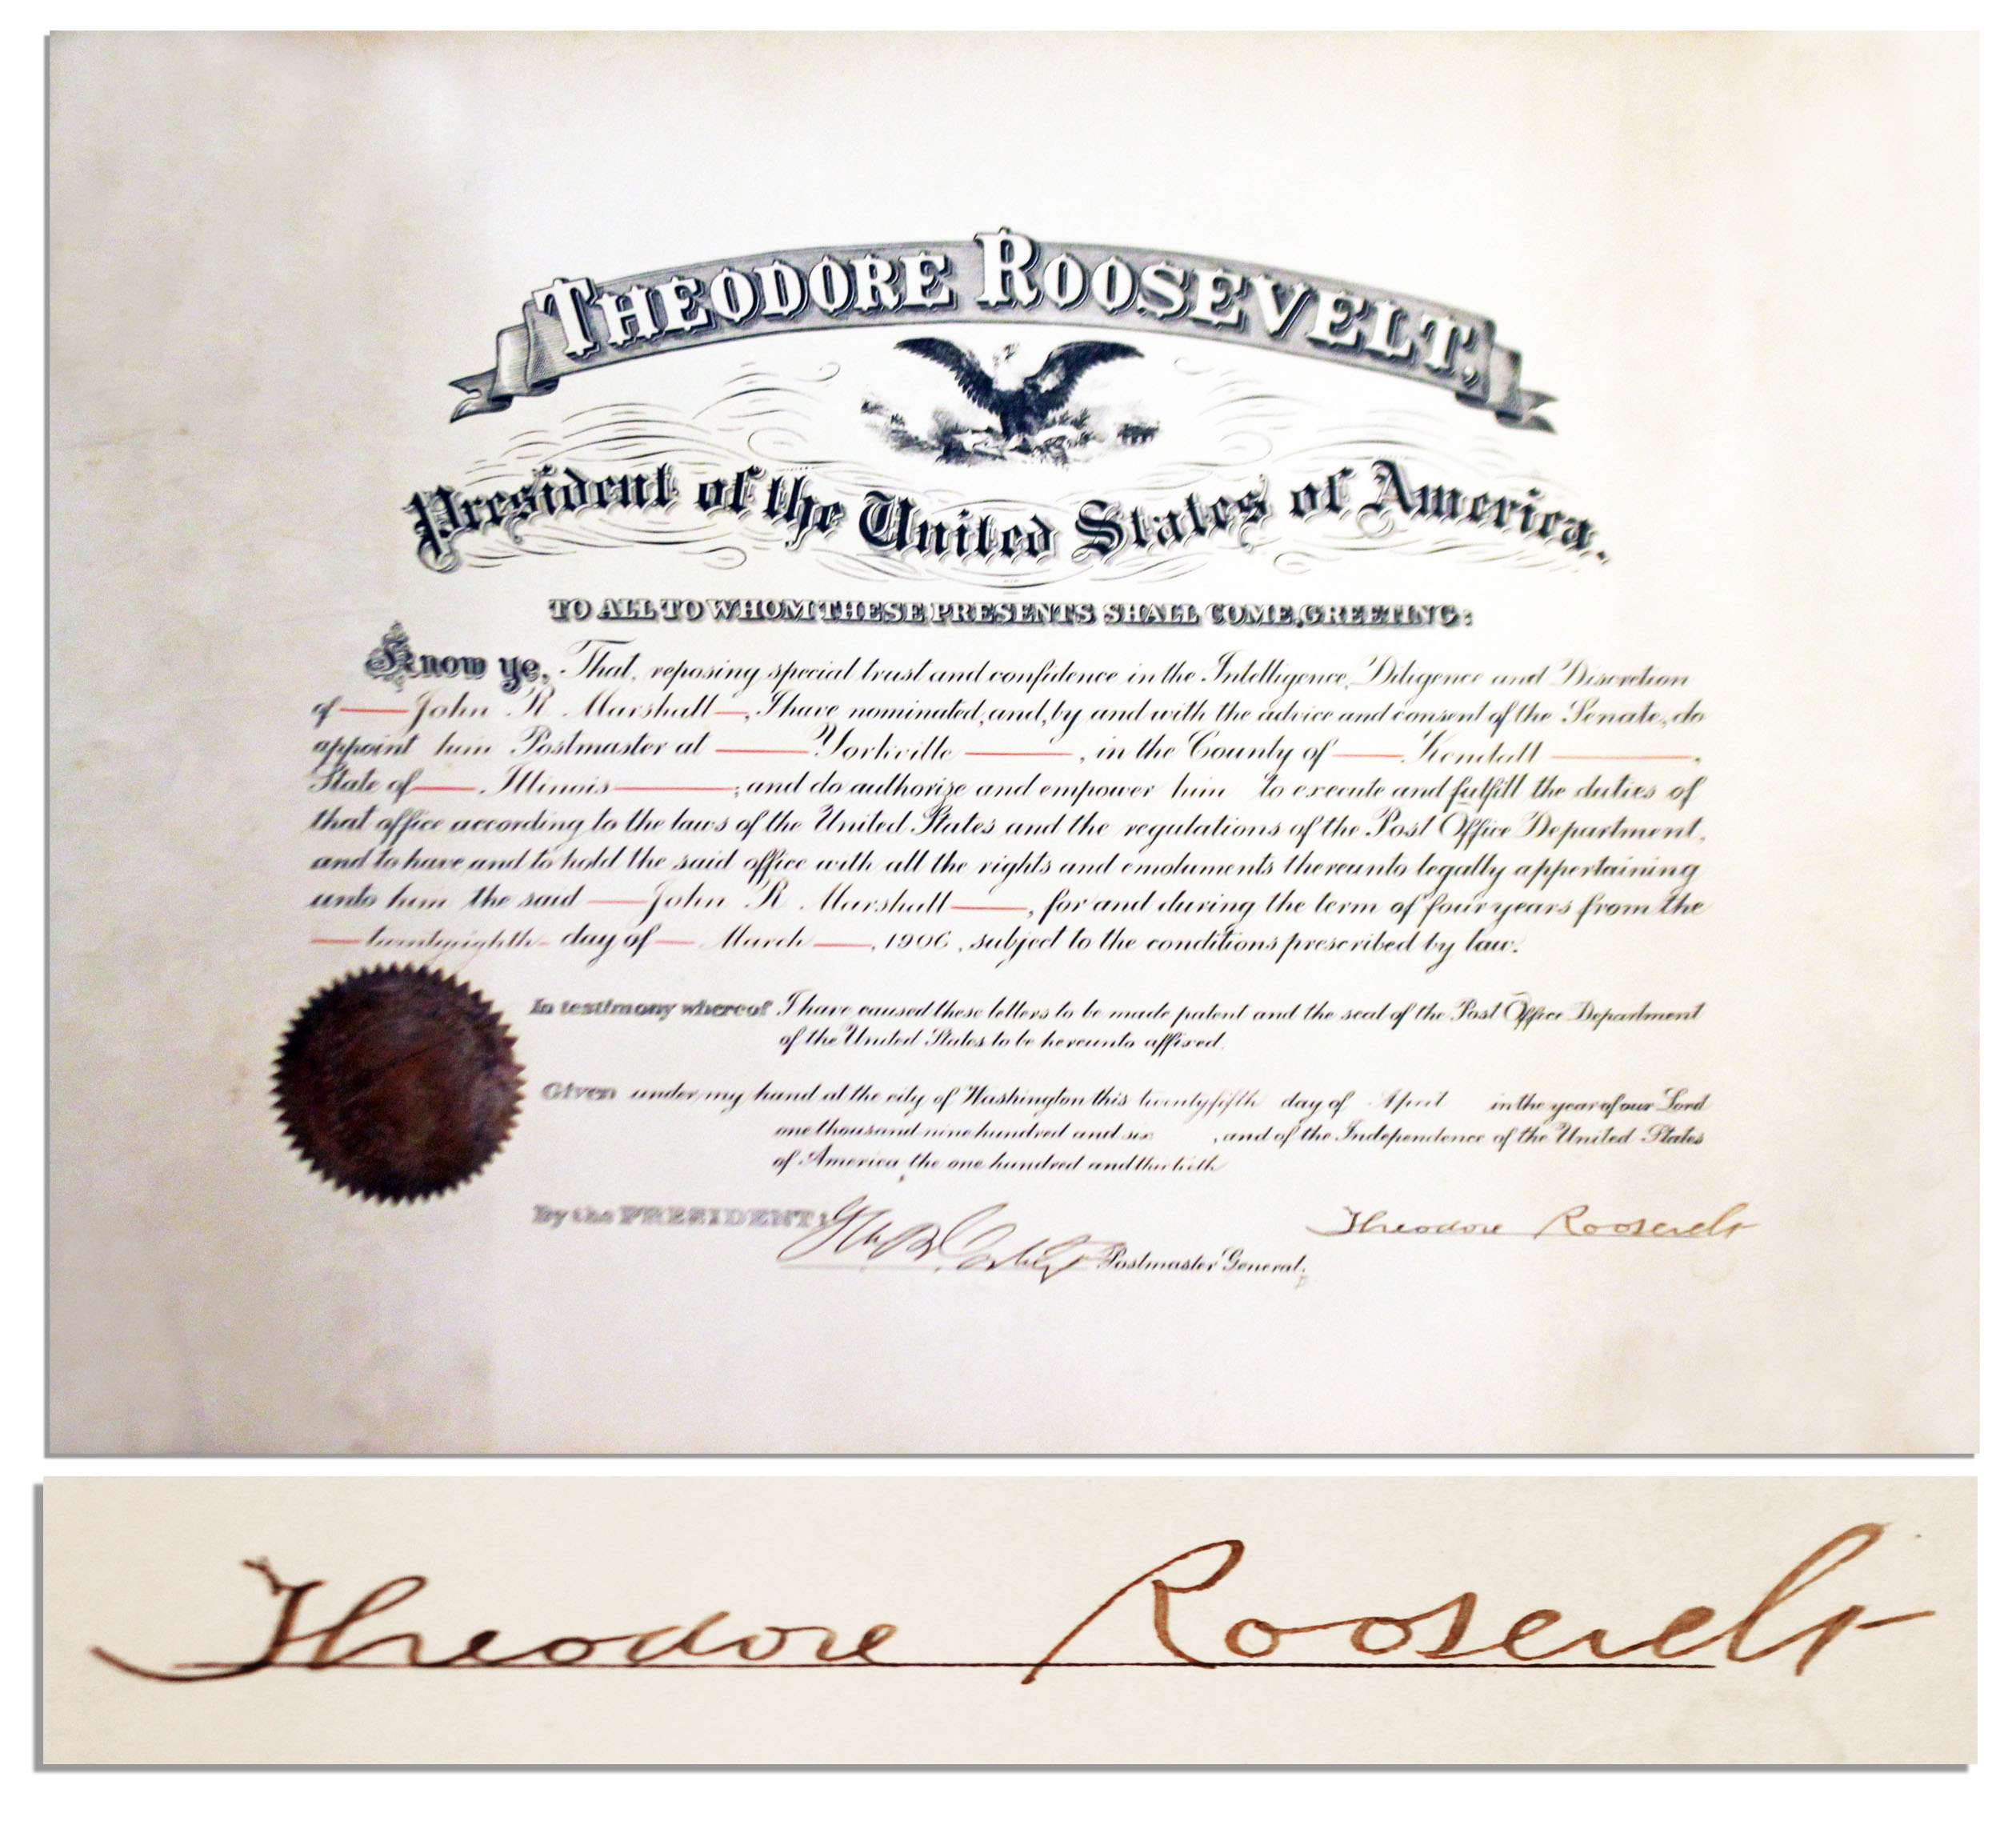 THEODORE ROOSEVELT,
President of the United States of America.
TO ALL TO WHOM THESE PRESENTS SHALL COME, GREETING:
Know ye, That, reposing special trust and confidence in the Intelligence, Diligence and Discretion
of John R Marshall, I have nominated, and, by and with the advice and consent of the Senate, do
appoint him Postmaster at Yorkville, in the County of Kendall,
State of Illinois; and do authorize and empower him to execute and fulfill the duties of
that office according to the laws of the United States and the regulations of the Post Office Department,
and to have and to hold the said office with all the rights and emoluments thereunto legally appertaining
unto him the said John R. Marshall, for and during the term of four years from the
twentyeighth day of March, 1906, subject to the conditions prescribed by law.
In testimony whereof I have caused these letters to be made patent and the seal of the Post Office Department
of the United States to be hereunto affixed.
Given under my hand at the city of Washington this twentyfifth day of April in the year of our Lord
one thousand nine hundred and six, and of the Independence of the United States
of America the one hundred and thirtieth
By the PRESIDENT:
Theodore Roosevelt
Postmaster General.
Theodore Roosevelt